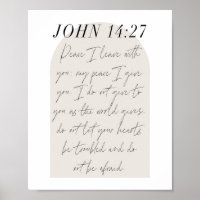 JOHN 14:27
Peace I leave with
you; my peace I give
you. I do not give to
you as the world gives.
do not let your hearts
be troubled and do
not be afraid